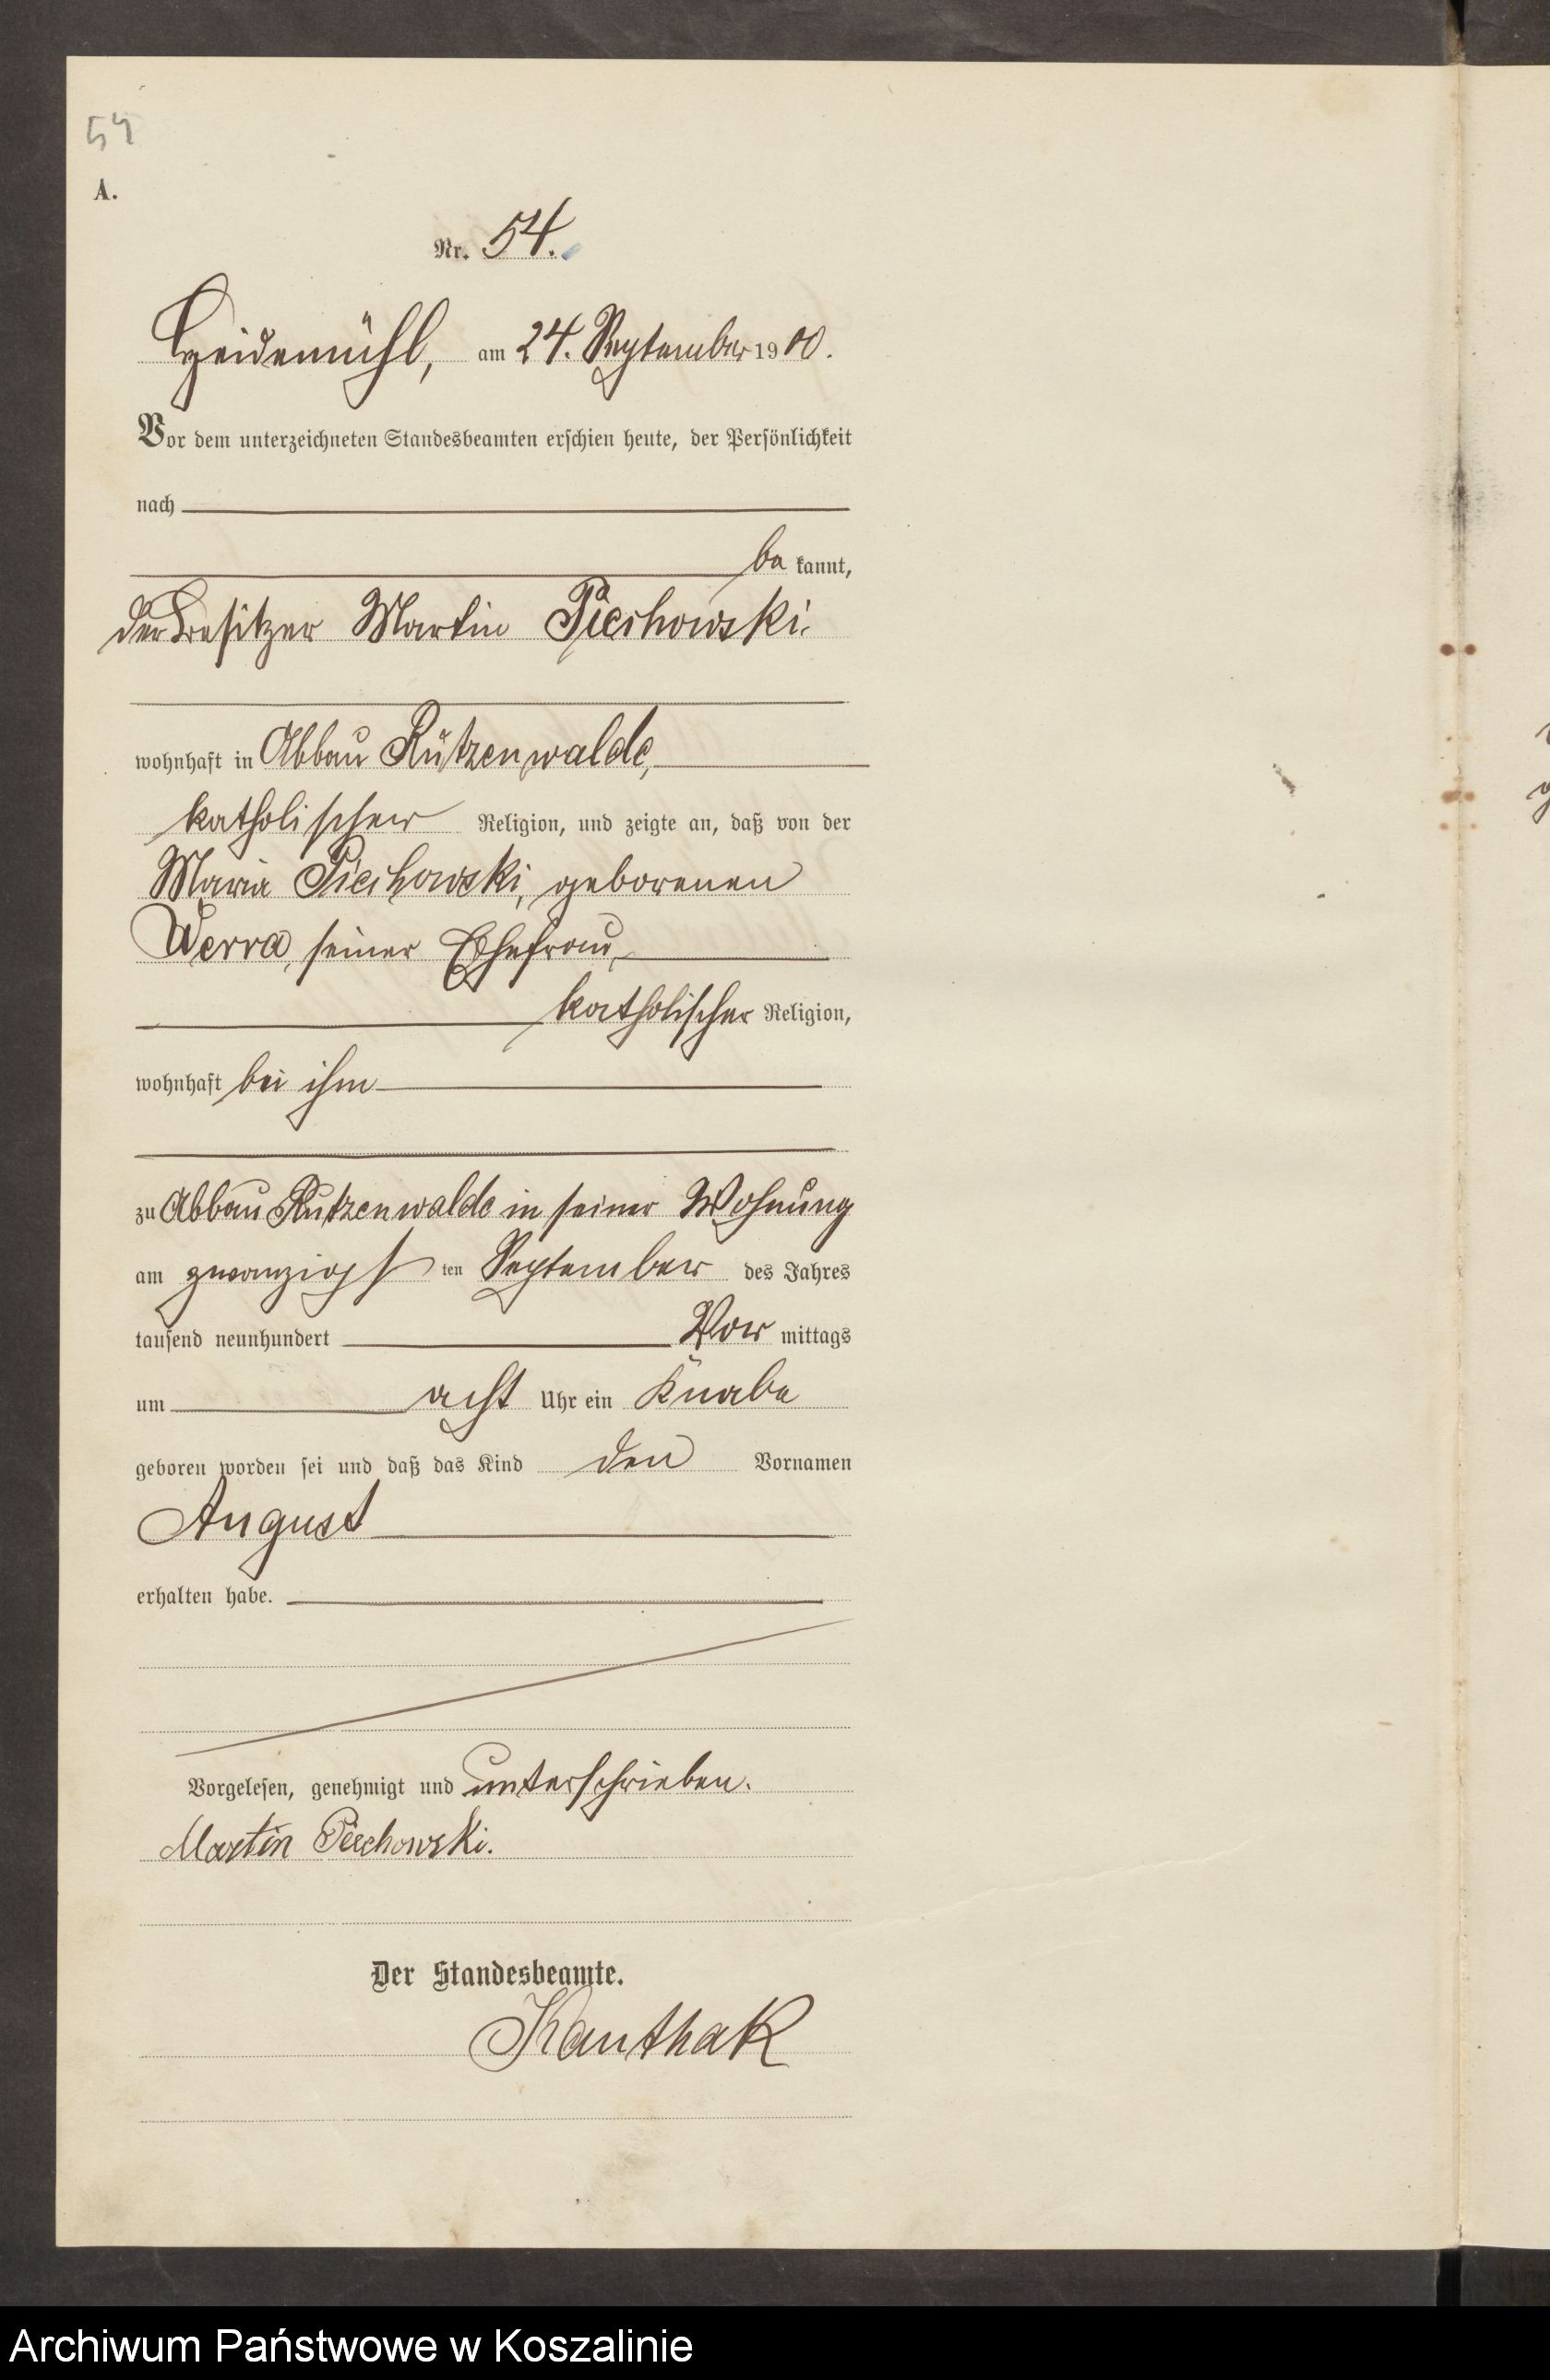 54
A.
Nr. 54.
Heidemühl, am 24. September 1900.
Vor dem unterzeichneten Standesbeamten erschien heute, der Persönlichkeit
nach
be kannt,
der Besitzer Martin Piechowski,
wohnhaft in Abbau Rützenwalde,
katholischer Religion, und zeigte an, daß von der
Maria Piechowski, geborenen
Werra, seiner Ehefrau,
katholischer Religion,
wohnhaft bei ihm
zu Abbau Rutzenwalde in seiner Wohnung
am zwanzigsten September des Jahres
tausend neunhundert Vor mittags
um acht Uhr ein Knabe
geboren worden sei und daß das Kind den Vornamen
August
erhalten habe.
Vorgelesen, genehmigt und unterschrieben.
Martin Piechowski.
Der Standesbeamte.
Kanthak
Archiwum Państwowe w Koszalinie